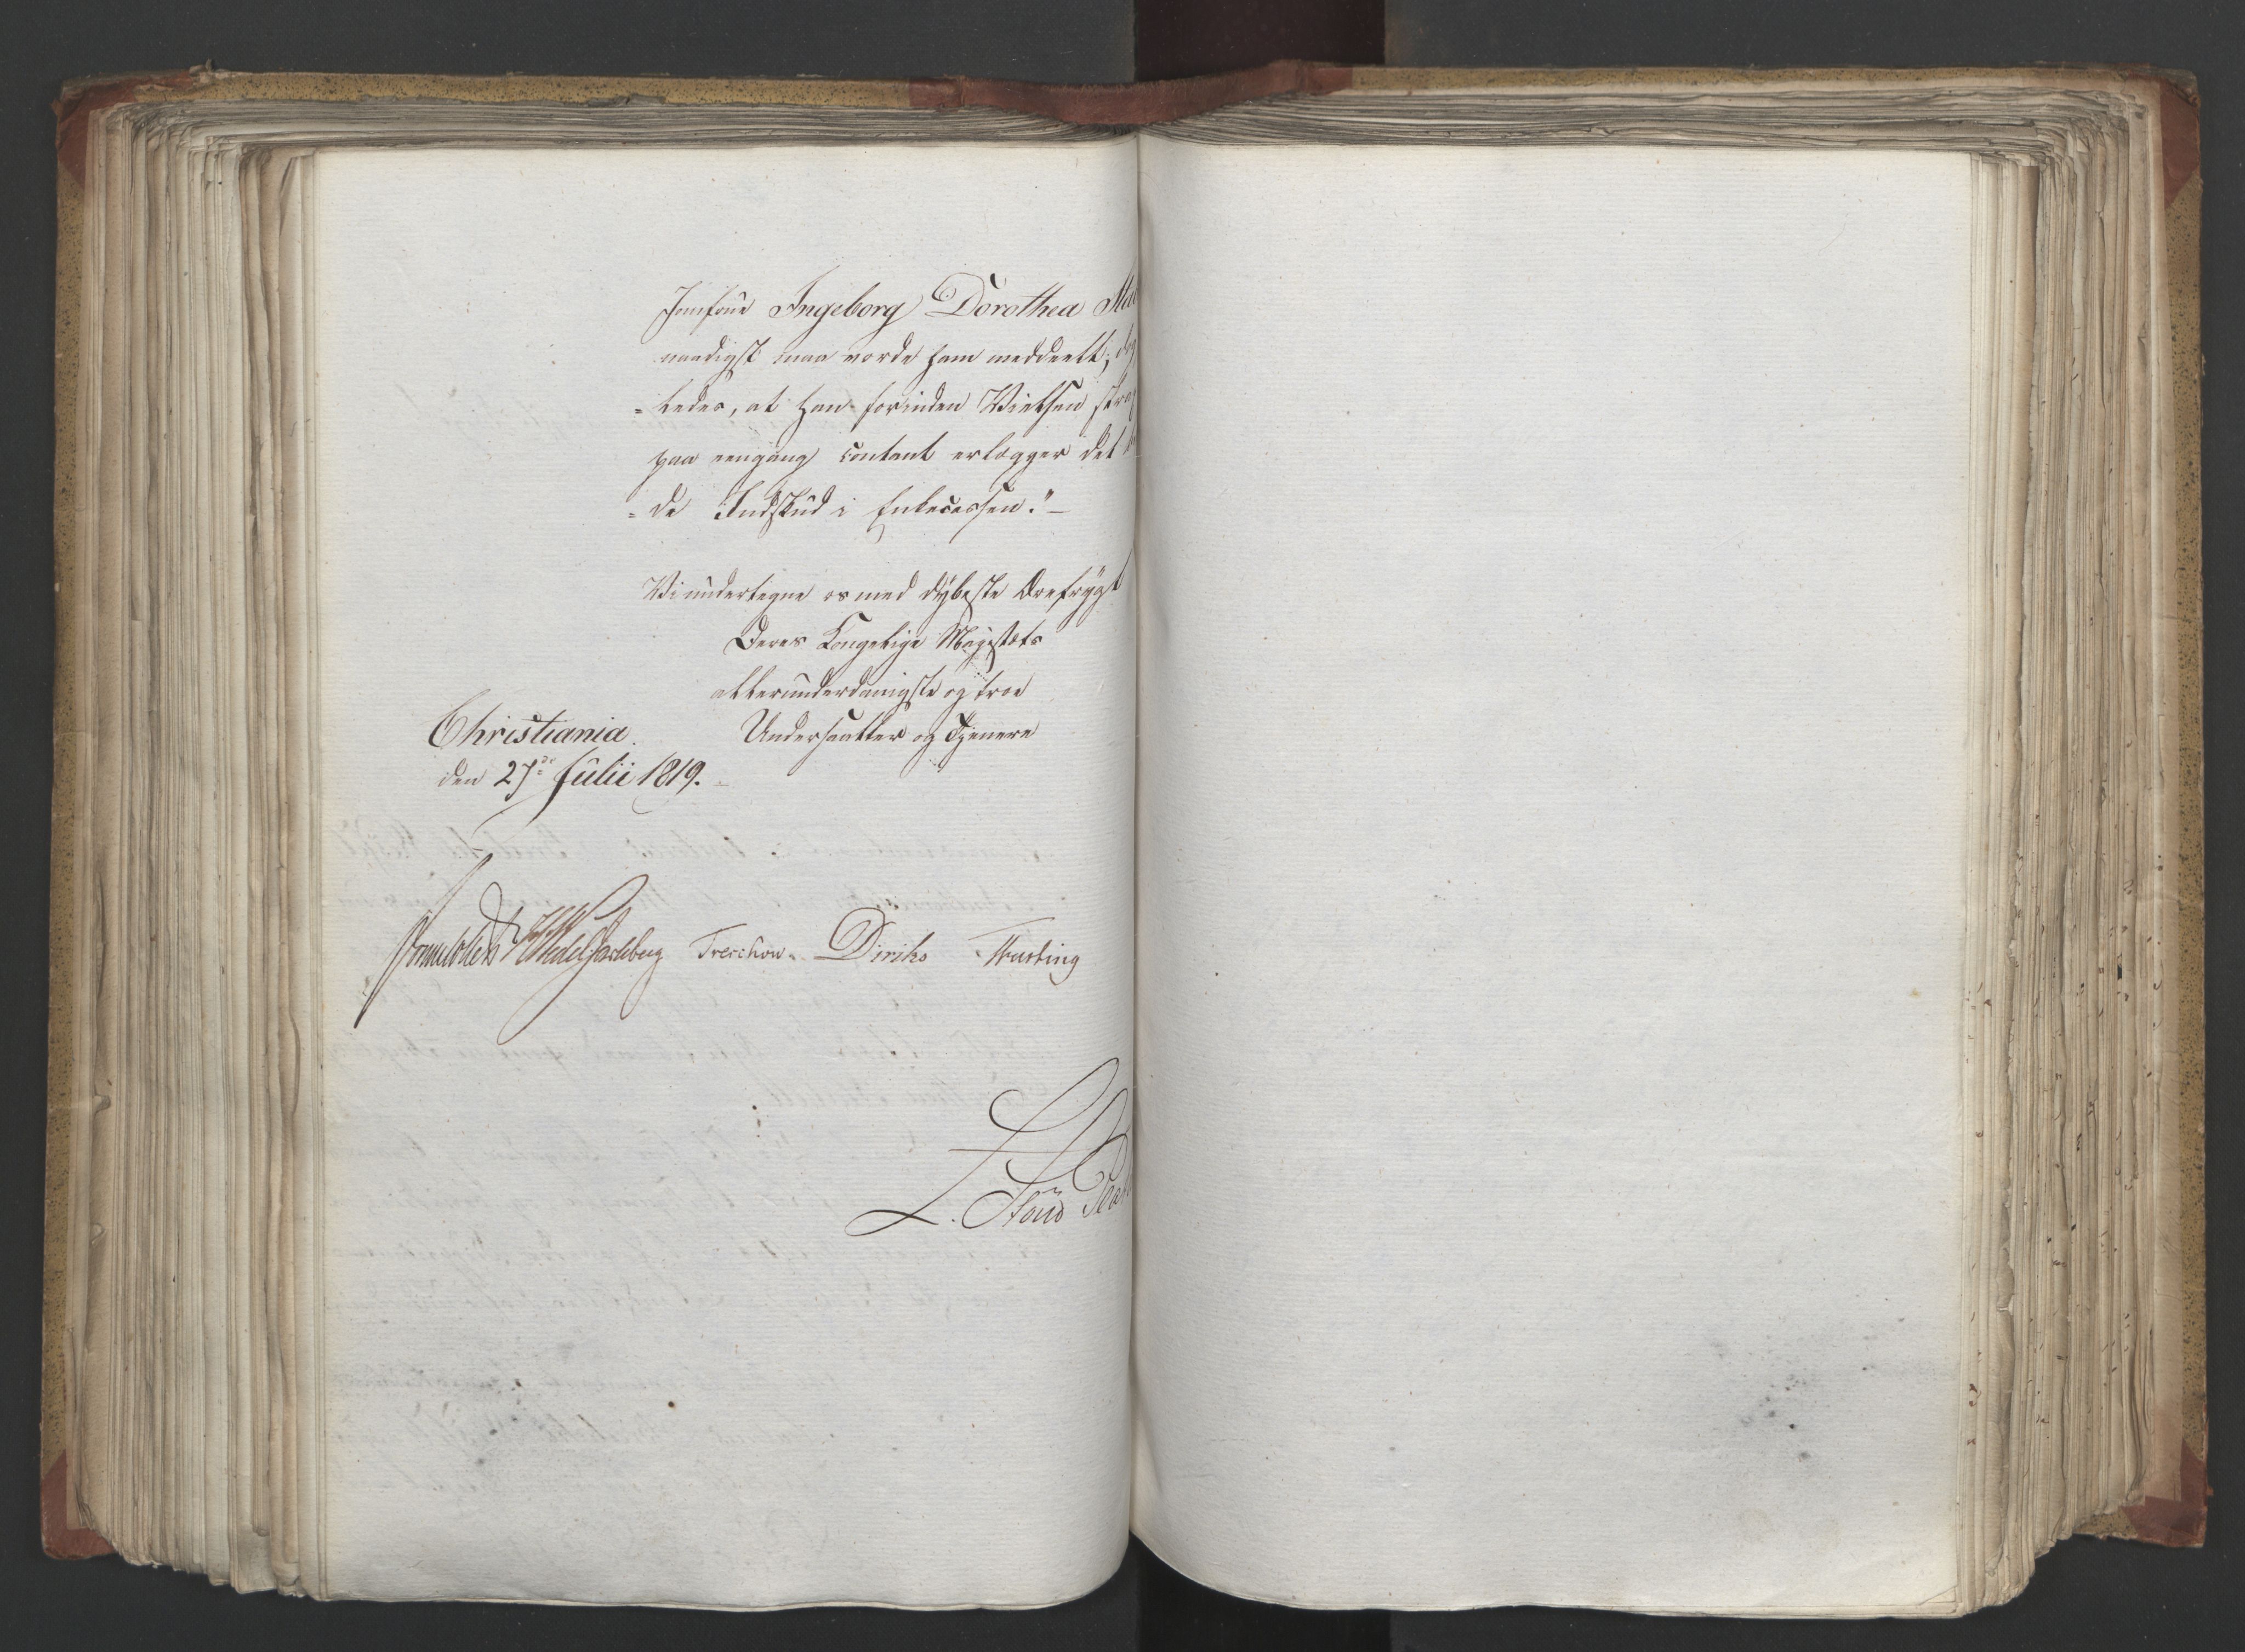 Jomfrue Ingeborg Dorothea
naadigst maa vorde ham meddeelt; dog
=ledes, at han forinden Vielsen strax
paa eengang contant erlægger det
=de Indskud i Enkecassen."—
Vi undertegne os med dybeste Ærefrygt
Deres Kongelige Majestæts
allerunderdanigste og troe
Undersaatter og Tjenere
Christiania
den 27de Julii 1819.
Sommerhielm Wedel Jarlsberg Treschow. Diriks Fasting
L. Stoud